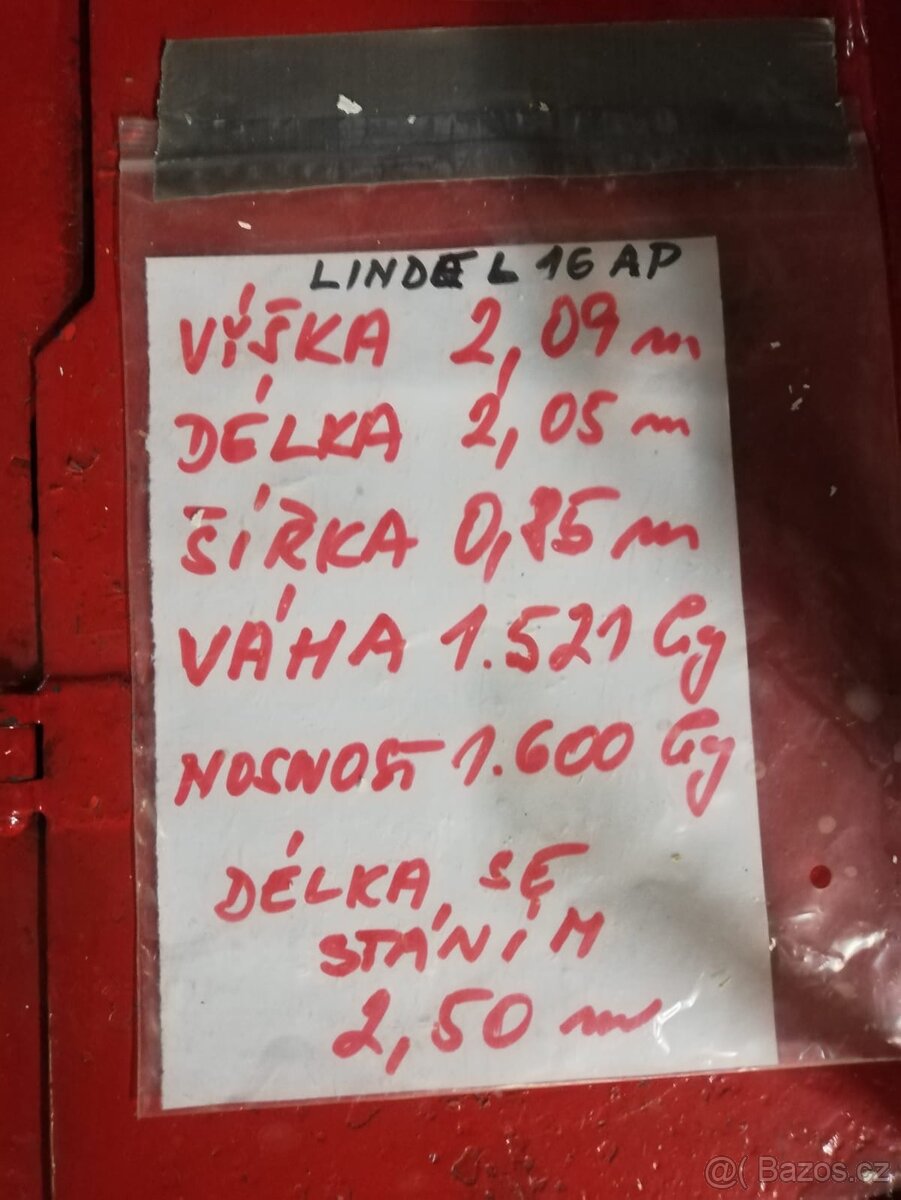 LINDE L 16 AP
VÝŠKA 2,09 m
DÉLKA 2,05 m
ŠÍŘKA 0,85 m
VÁHA 1.521 kg
NOSNOST 1.600 kg
DÉLKA SE
STÁNÍM
2,50 m
@( Bazos.cz